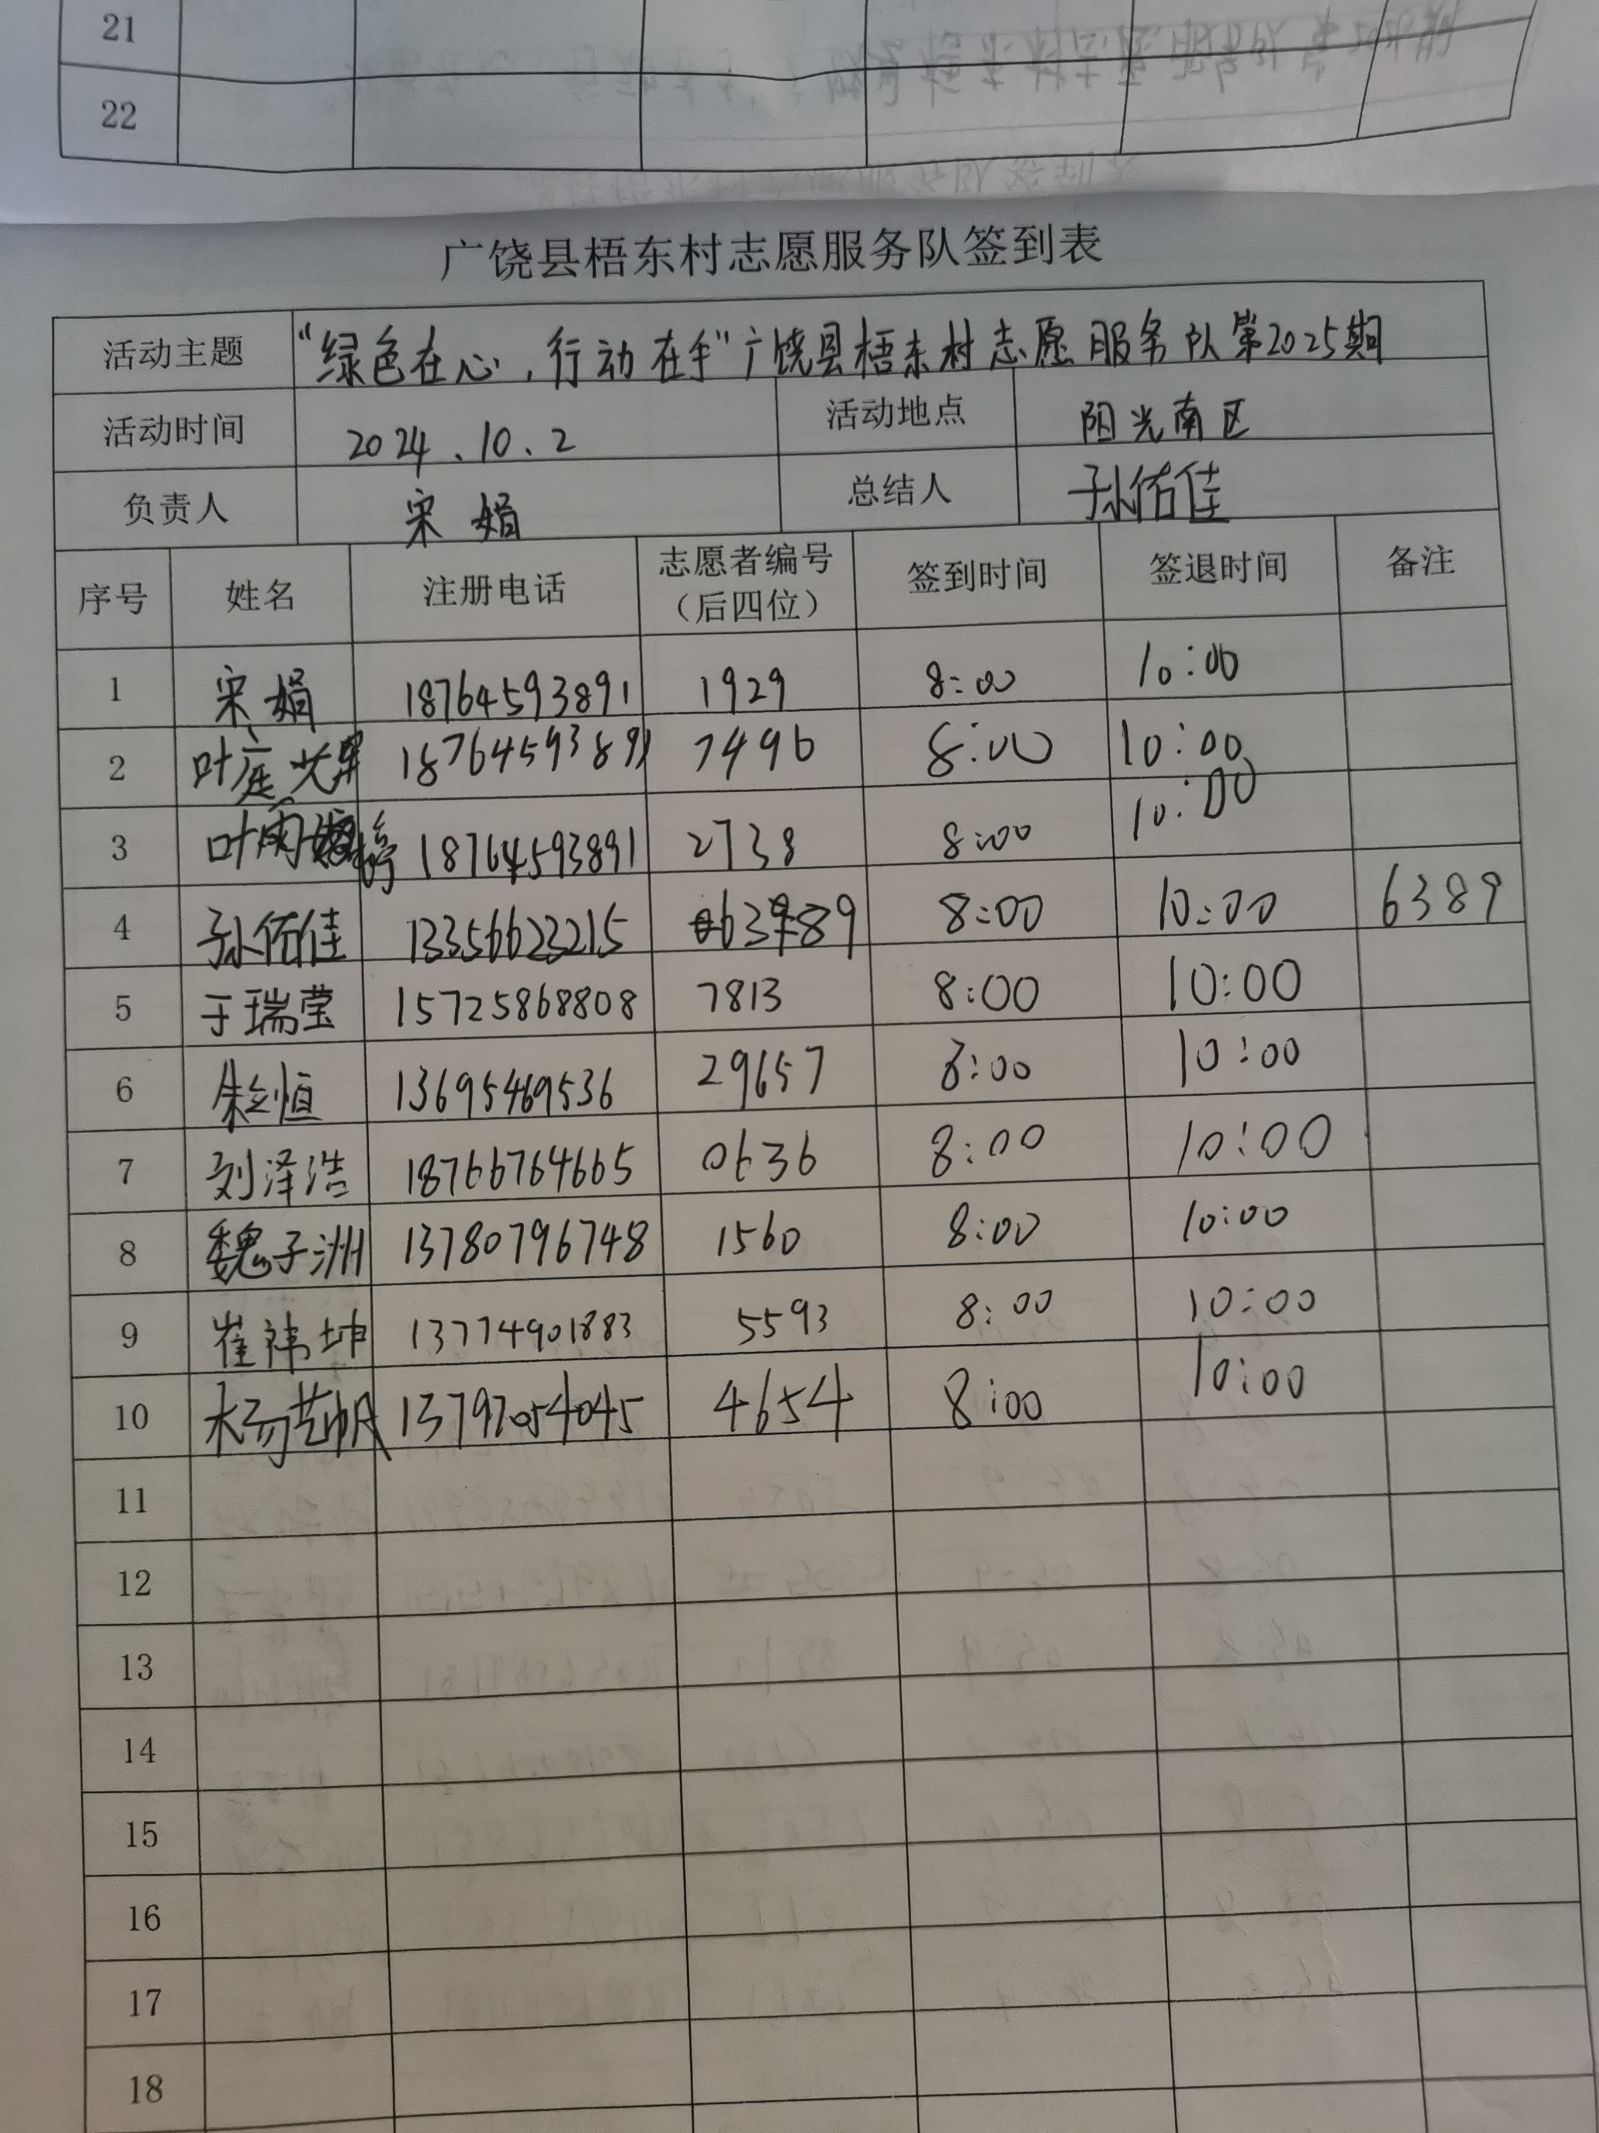 21
22
广饶县梧东村志愿服务队签到表
活动主题 “绿色在心，行动在手”广饶县梧东村志愿服务队第2025期
活动时间 2024.10.2 活动地点 阳光南区
负责人 宋娟 总结人 孙佑佳
序号 姓名 注册电话 志愿者编号（后四位） 签到时间 签退时间 备注
1 宋娟 18764593891 1929 8:00 10:00
2 18764593891 7496 8:00 10:00
3 叶雨婷 18764593891 2738 8:00 10:00
4 孙佑佳 13356623215 8:00 10:00 6389
5 于瑞莹 15725868808 7813 8:00 10:00
6 13695469536 29657 8:00 10:00
7 刘泽浩 18766764665 0636 8:00 10:00
8 魏子洲 13780796748 1560 8:00 10:00
9 崔祎坤 13774901883 5593 8:00 10:00
10 杨艺帆 13797054045 4654 8:00 10:00
11
12
13
14
15
16
17
18